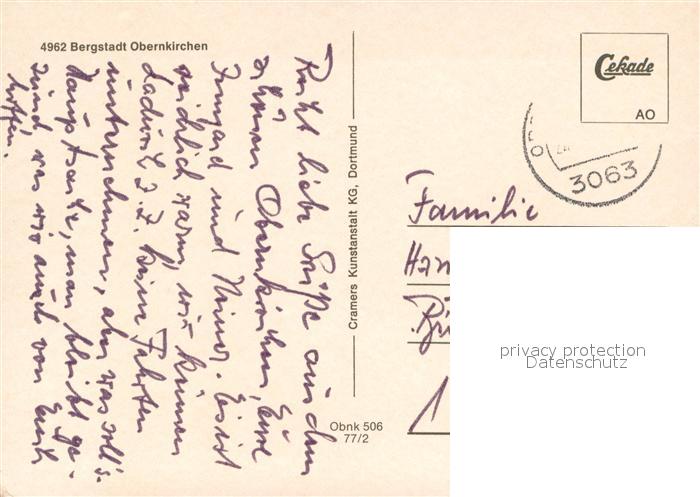 4962 Bergstadt Obernkirchen
Recht liebe Grüße aus dem
schönen Obernkirchen, Eure
Irmgard und Heiner. Es ist
reichlich warm, wir können
dadurch z.Z. keine Fahrten
unternehmen, aber was soll's.
Hauptsache, man bleibt ge-
sund, was wir auch von Euch
hoffen.
Cramers Kunstanstalt KG, Dortmund
Obnk 506
77/2
Cekade
AO
3063
Familie
privacy protection
Datenschutz